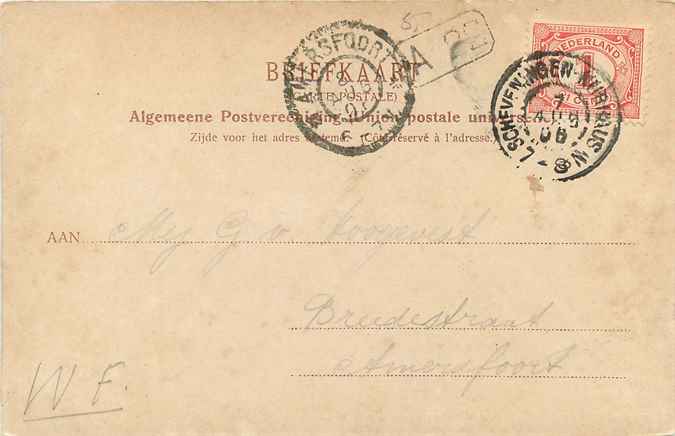 NEDERLAND
1
AMERSFOORT
SCHEVENINGEN-KURHAUS
7
AUG
06
BRIEFKAART
(CARTE POSTALE)
Algemeene Postvereeniging (Union postale universelle)
Zijde voor het adres bestemd. (Côté réservé à l'adresse.)
AAN Mej G v. Hoogevest
Breedestraat
Amersfoort
W F.